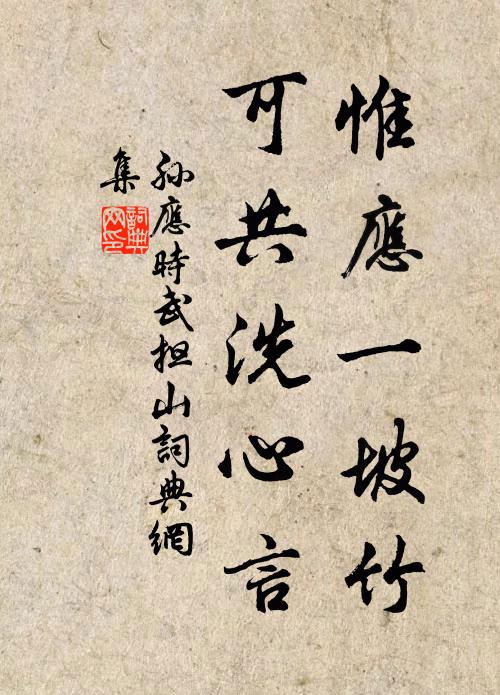 惟應一坡竹
可共洗心言
孙應時武担山詞典網
集
詞典网印